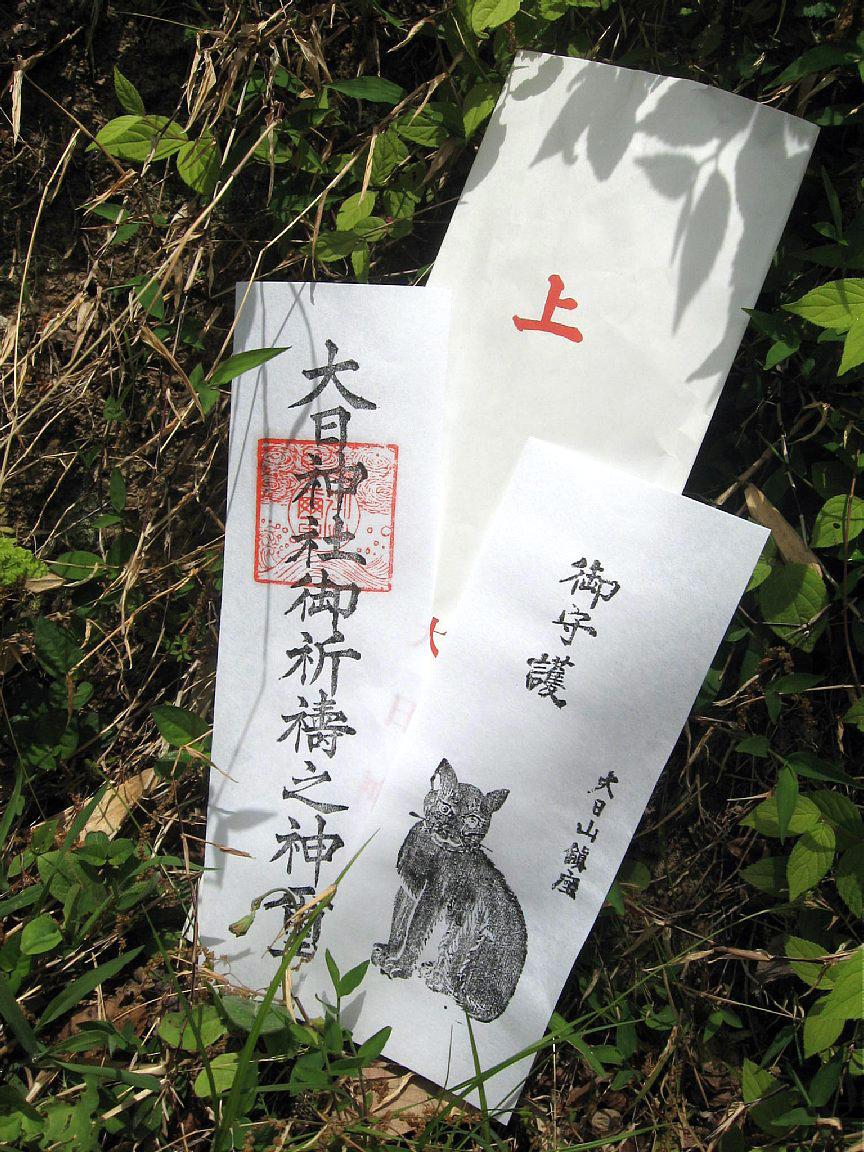 上
大日神社御祈禱之神
御守護
大日山鎮座